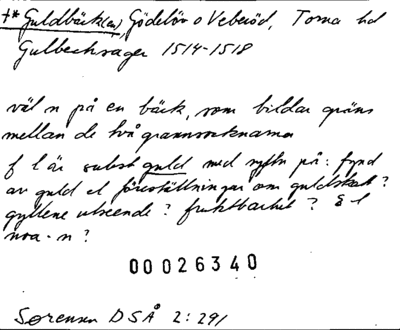 †* Guldbäck(en), Gödelöv o Veberöd, Torna hd
Gulbecksager 1514-1518
väl n på en bäck, som bildar gräns
mellan de två grannsocknarna
f l är subst guld med syftn på: fynd
av guld el föreställningar om guldskatt?
gyllene utseende? fruktbarhet?
noa-n?
00026340
Sørensen DSÅ 2:291